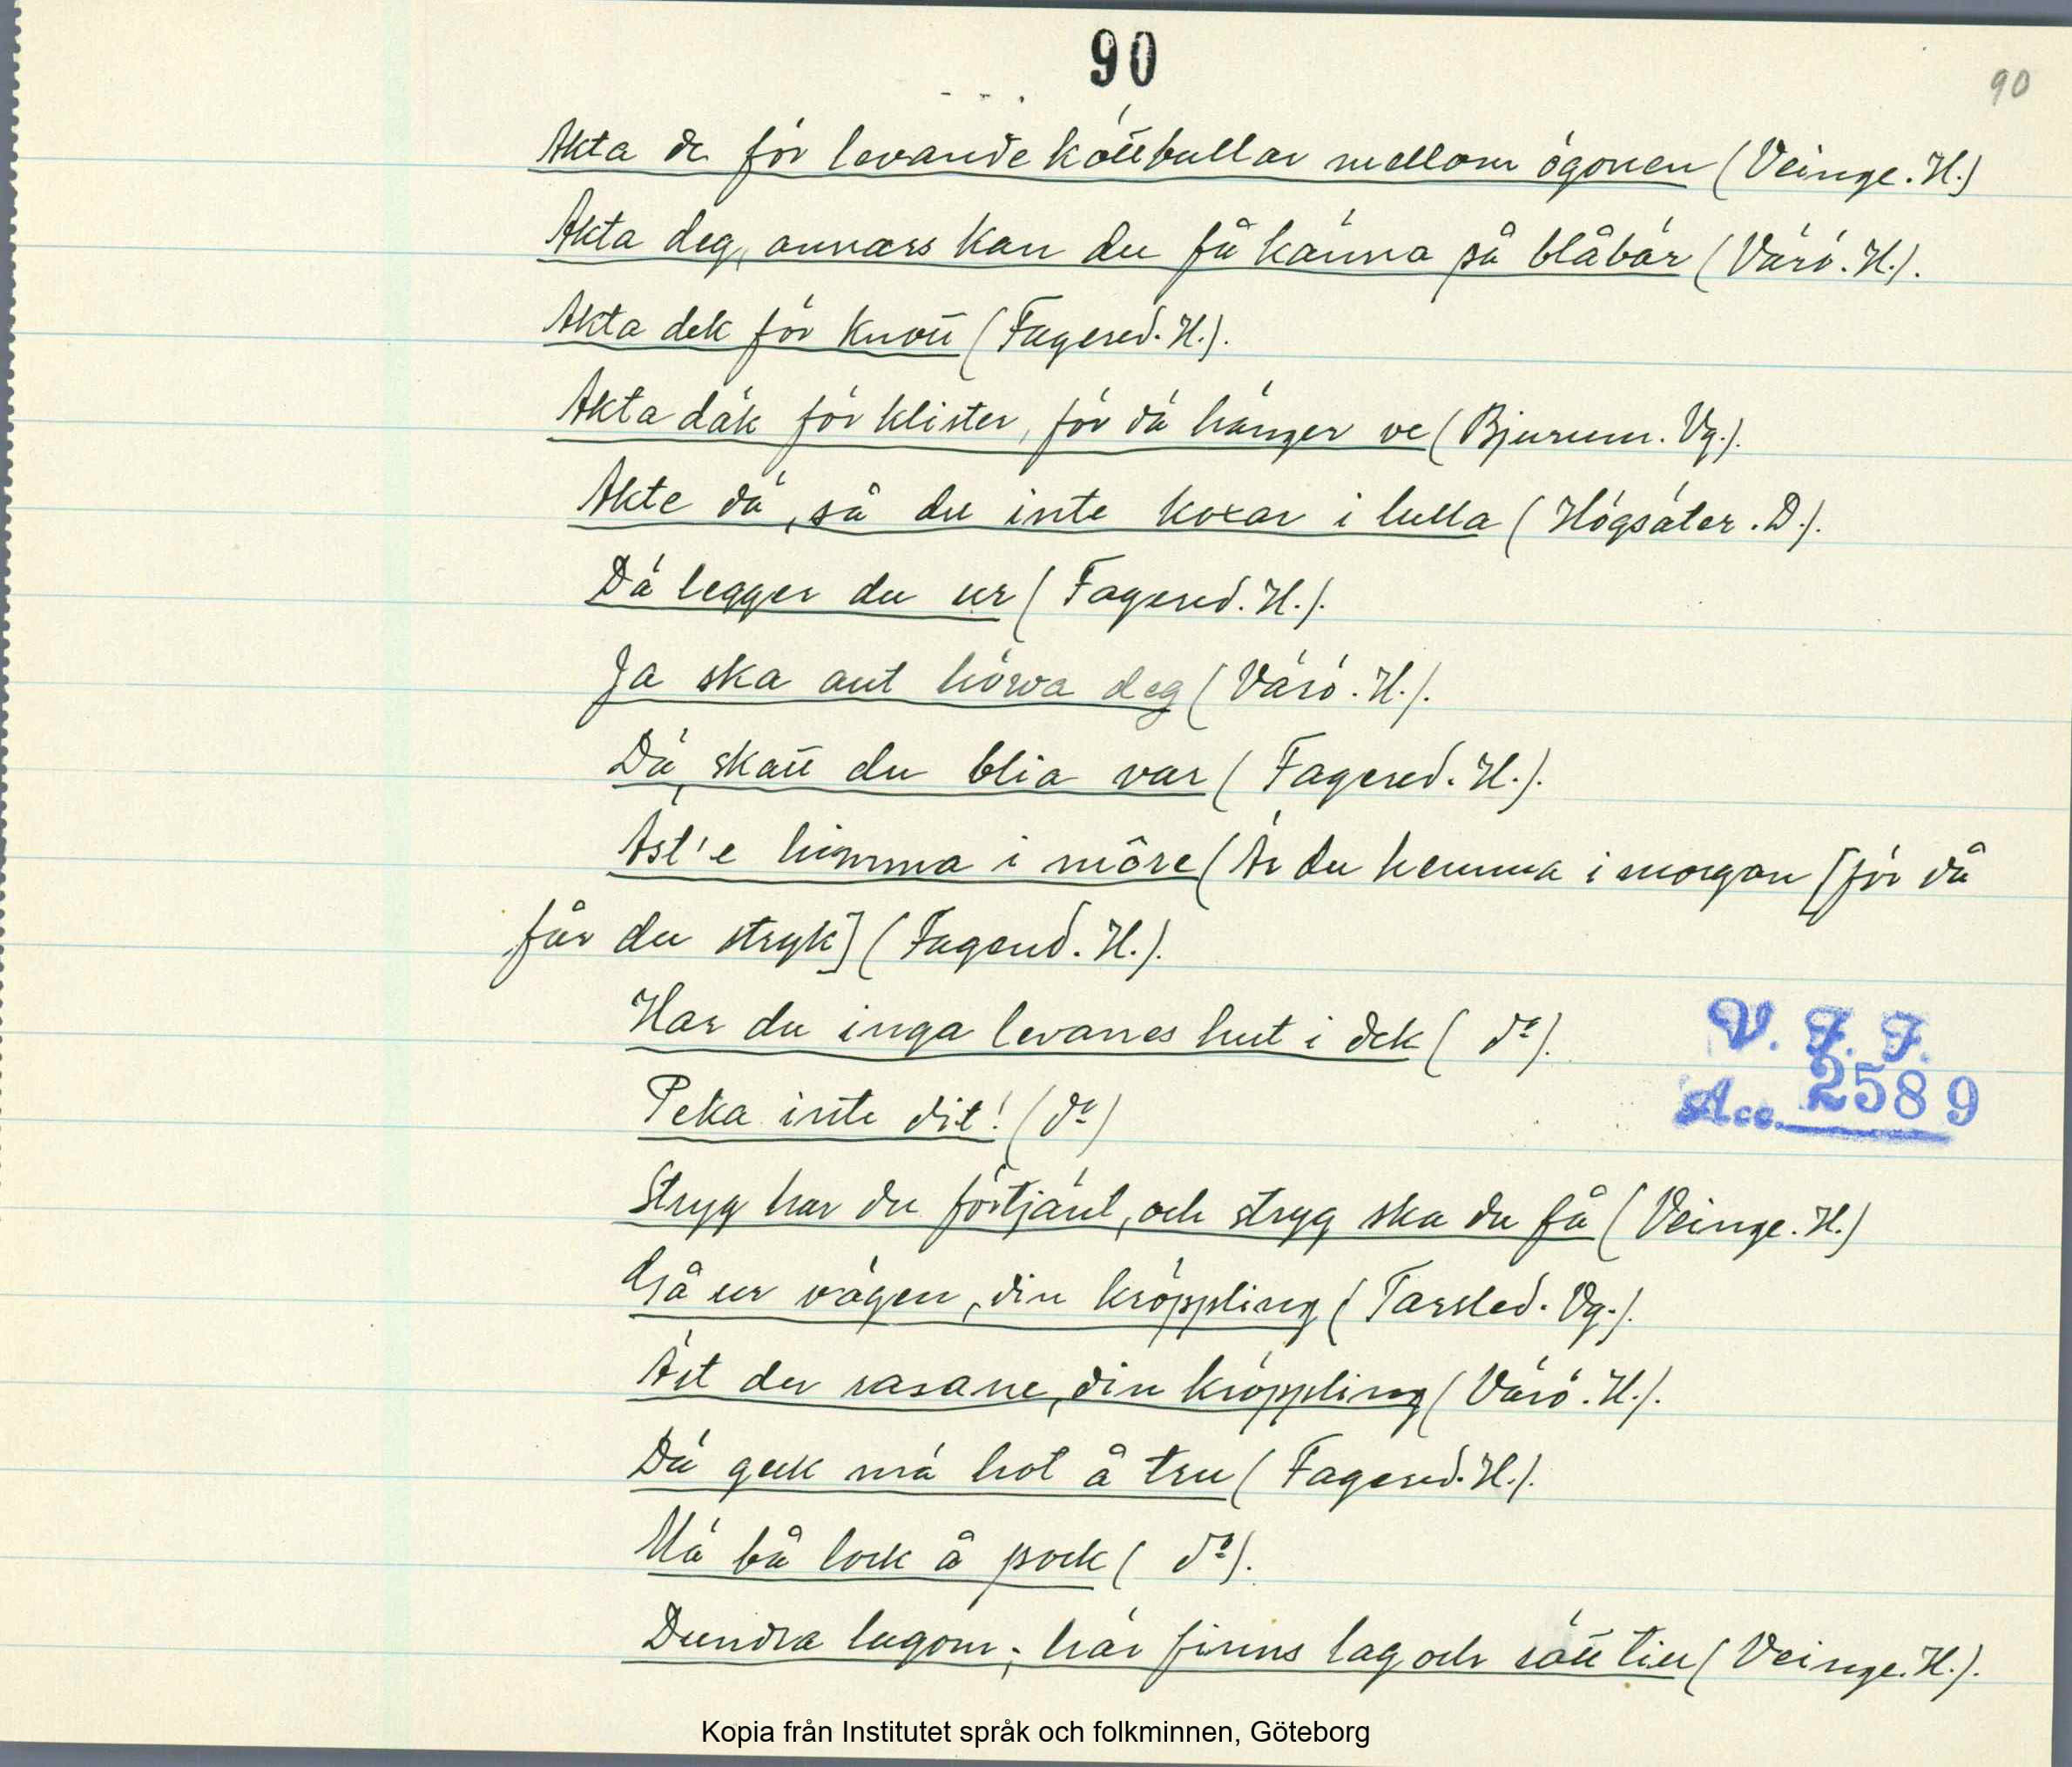 90
90
Akta de för levande köttbullar mellom ögonen (Veinge. H.)
Akta deg, annars kan du få känna på blåbär (Värö. H.).
Akta dek för knott (Fagered. H.).
Akta däk för klister, för dä hänger ve (Bjurum. Vg.).
Akte dä, så du inte koxar i lulla (Högsäter. D.).
Dä legger du ur (Fagered. H.).
Ja ska aut hörva deg (Värö. H.).
Dä skatt du blia var (Fagered. H.).
Äst'e himma i môre (Är du hemma i morgon [för då
får du stryk] (Fagered. H.).
Har du inga levanes hut i dek (do).
V. F. F.
Acc. 2589
Peka inte dit! (do)
Stryg har du förtjänt, och stryg ska du få (Veinge. H.)
Gå ur vägen, din kröppling (Tarsled. Vg.).
Äst du rasane, din kröppling (Värö. H.).
Dä gick mä hot å tru (Fagered. H.).
Mä bå lock å pock (do).
Dundra lagom; här finns lag och rätt till (Veinge. H.).
Kopia från Institutet språk och folkminnen, Göteborg